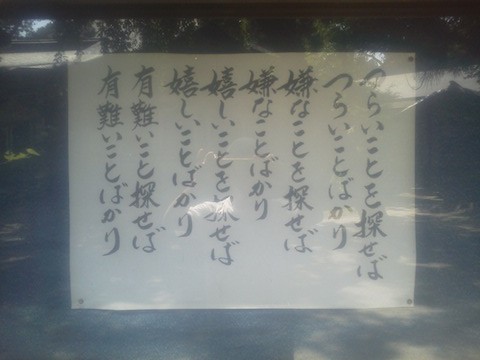 つらいことを探せば
つらいことばかり
嫌なことを探せば
嫌なことばかり
嬉しいことを探せば
嬉しいことばかり
有難いこと探せば
有難いことばかり